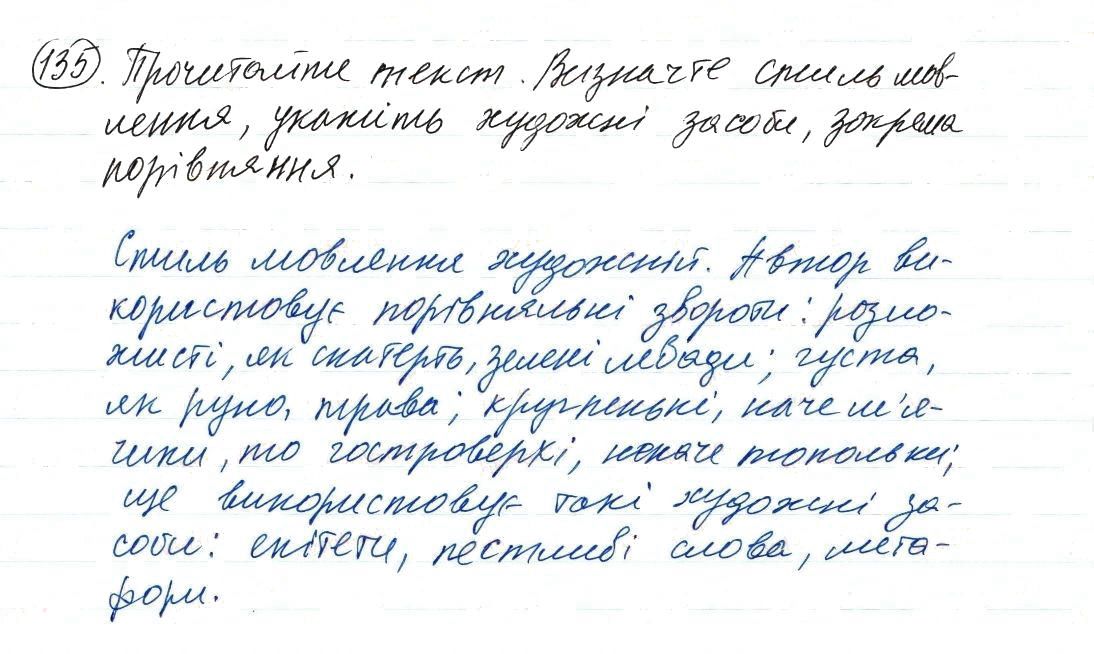 135. Прочитайте текст. Визначте стиль мов-
лення, укажіть художні засоби, зокрема
порівняння.
Стиль мовлення художній. Автор ви-
користовує порівняльні звороти: розло-
жисті, як скатерть, зелені левади; густа,
як руно, трава; кругленькі, наче м'я-
чики, то гостроверхі, неначе топольки;
ще використовує такі художні за-
соби: епітети, пестливі слова, мета-
фори.